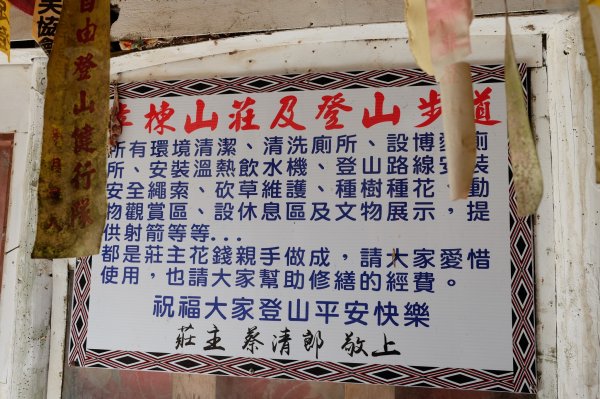 李棟山莊及登山步道
所有環境清潔、清洗廁所、設博愛廁
所、安裝溫熱飲水機、登山路線安裝
安全繩索、砍草維護、種樹種花、動
物觀賞區、設休息區及文物展示，提
供射箭等等...
都是莊主花錢親手做成，請大家愛惜
使用，也請大家幫助修繕的經費。
祝福大家登山平安快樂
莊主 蔡清郎 敬上
自由登山健行隊